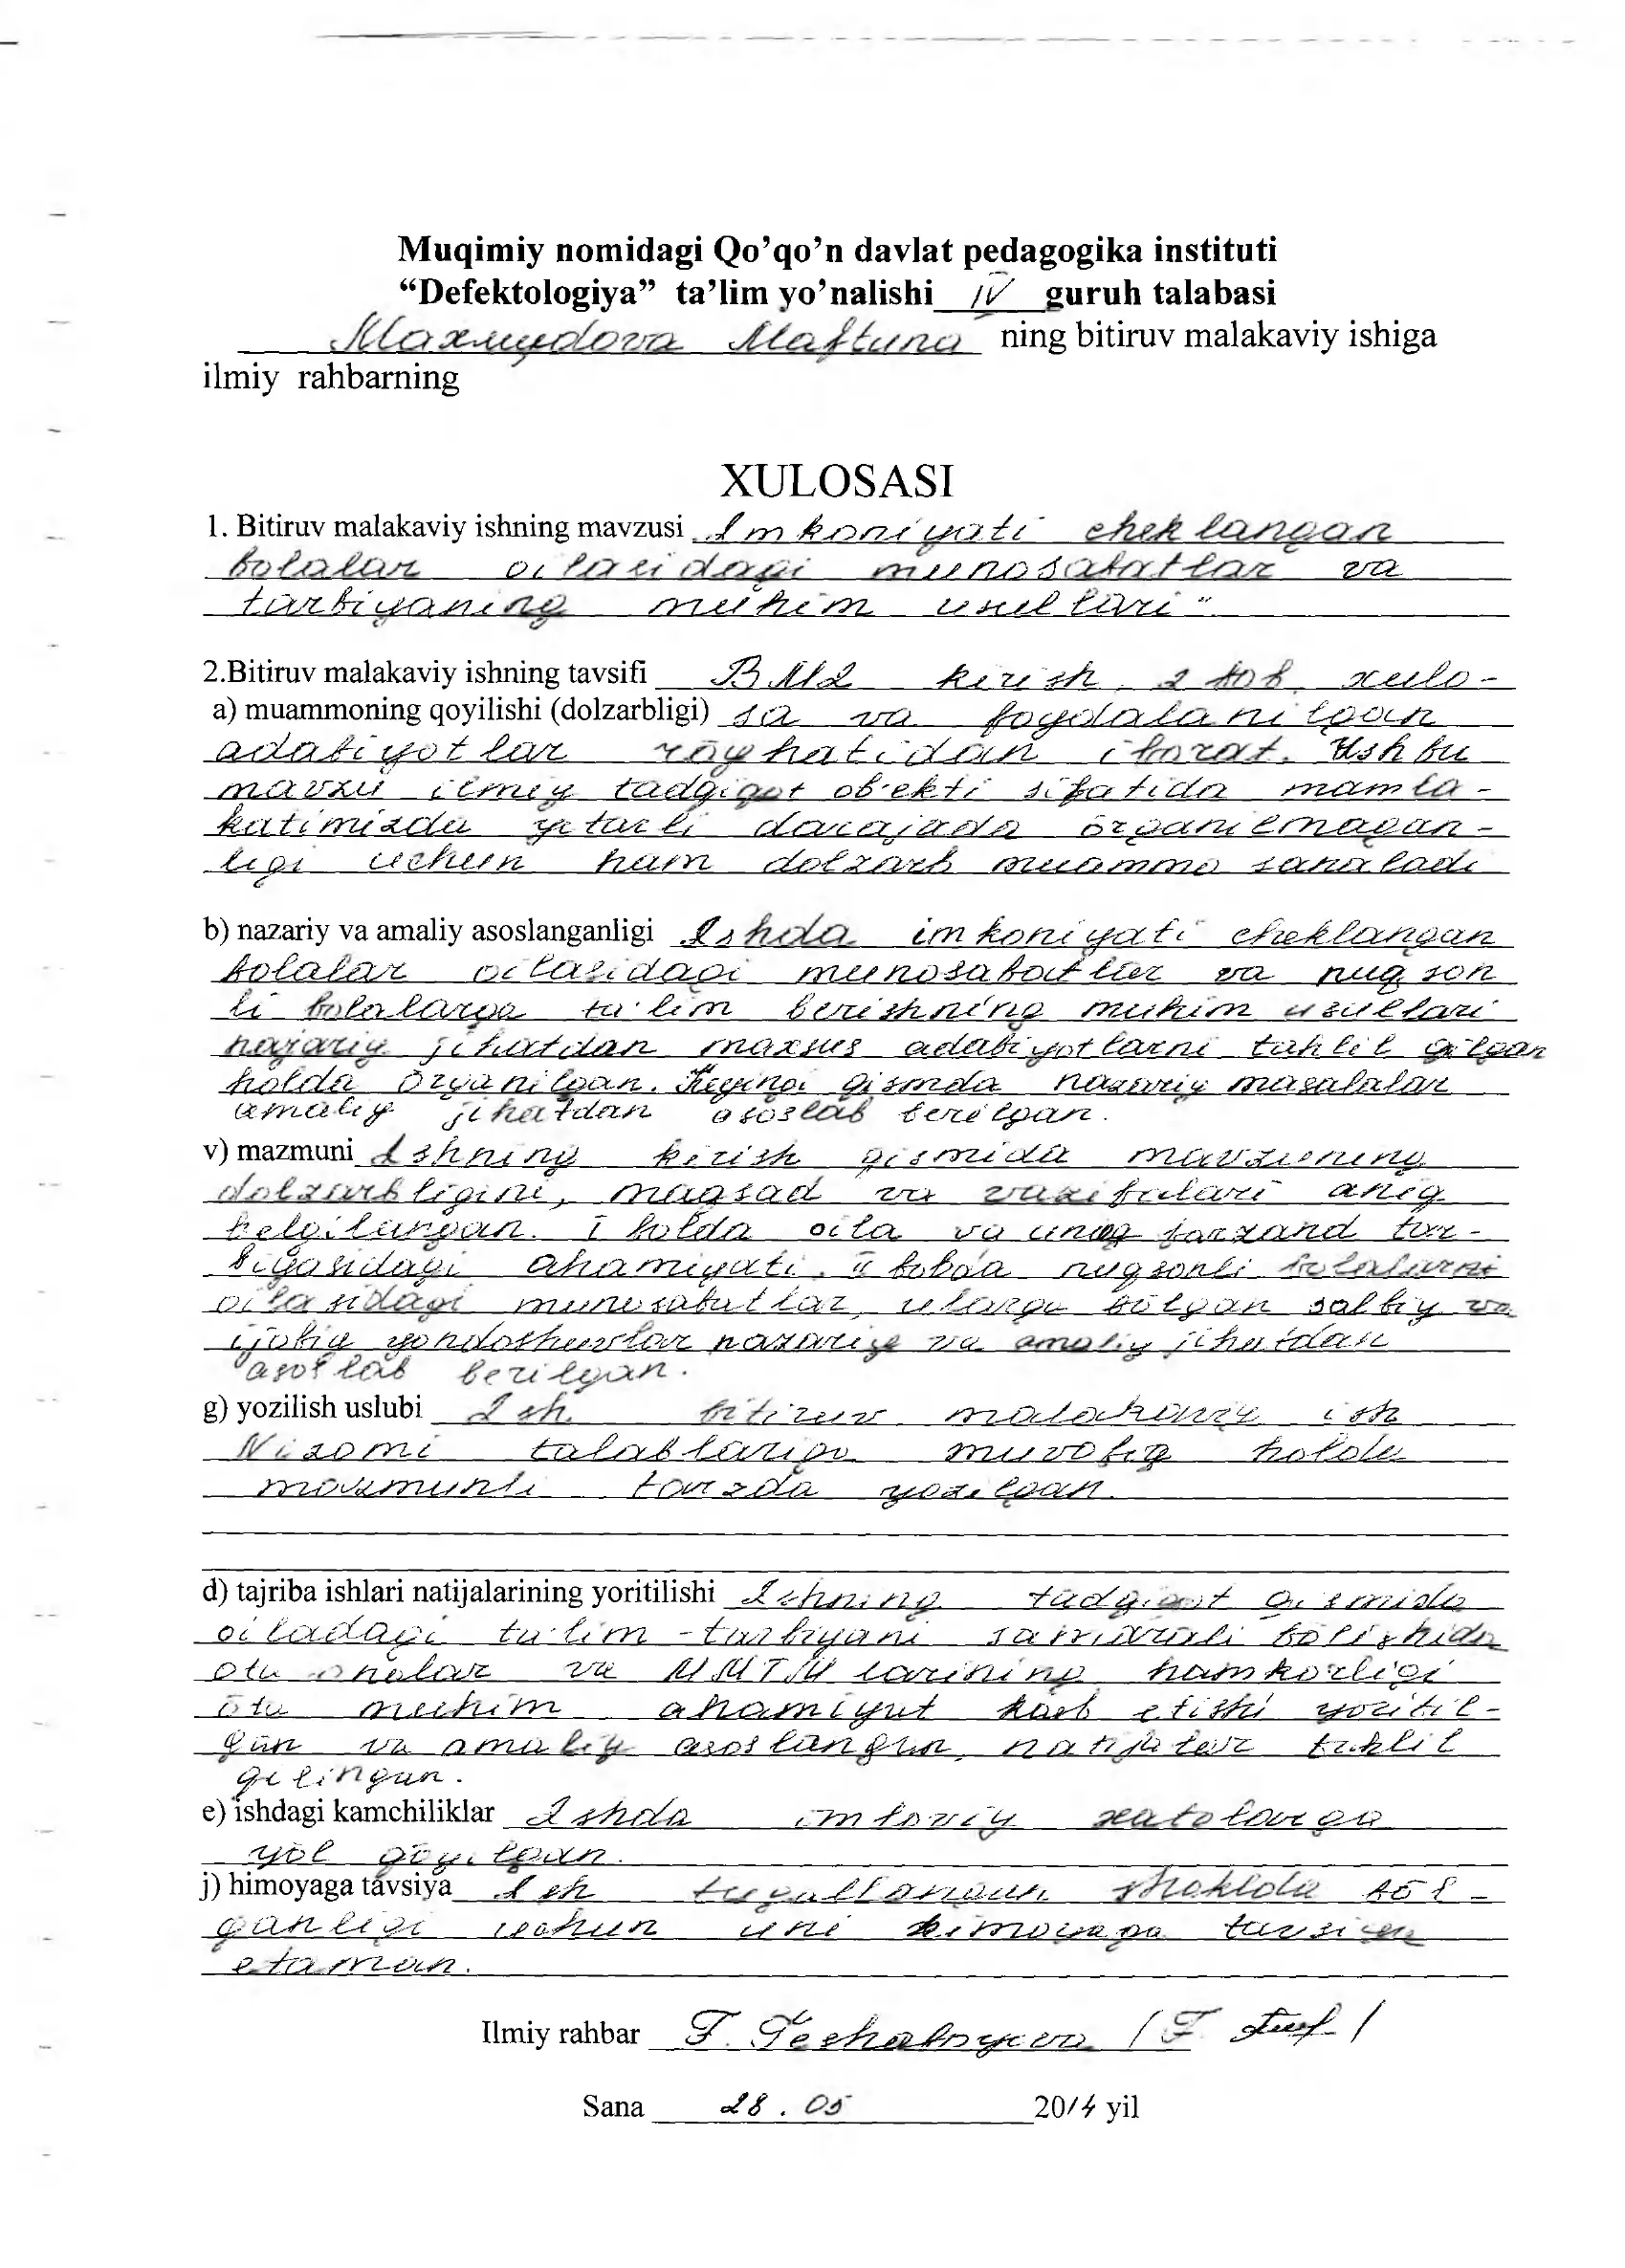 Muqimiy nomidagi Qo’qo’n davlat pedagogika instituti
“Defektologiya” ta’lim yo’nalishi IV guruh talabasi
Maxmudova Maftuna ning bitiruv malakaviy ishiga
ilmiy rahbarning
XULOSASI
1. Bitiruv malakaviy ishning mavzusi Imkoniyati cheklangan
bolalar oilasidagi munosabatlar va
tarbiyaning muhim usullari"
2.Bitiruv malakaviy ishning tavsifi BMI kirish, 2 bob, xulo-
a) muammoning qoyilishi (dolzarbligi) sa va foydalanilgan
adabiyotlar rōyhatidan iborat. Ushbu
mavzu ilmiy tadqiqot ob'ekti sifatida mamla-
katimizda yetarli darajada ōrganilmagan-
ligi uchun ham dolzarb muammo sanaladi
b) nazariy va amaliy asoslanganligi Ishda imkoniyati cheklangan
bolalar oilasidagi munosabatlar va nuqson
li bolalarga ta'lim berishning muhim usullari
nazariy jihatdan maxsus adabiyotlarni tahlil qilgan
holda ōrganilgan. Keyingi qismda nazariy masalalar
amaliy jihatdan asoslab berilgan.
v) mazmuni Ishning kirish qismida mavzuning
dolzarbligini, maqsad va vazifalari aniq
belgilangan. I bobda oila va uning farzand tar-
biyasidagi ahamiyati, II bobda nuqsonli bolalarni
oilasidagi munosabatlar, ularga bōlgan salbiy va
ijobiy yondoshuvlar nazariy va amaliy jihatdan
asoslab berilgan.
g) yozilish uslubi Ish bitiruv malakaviy ish
Nizomi talablariga muvofiq holda
mazmunli tarzda yozilgan.
d) tajriba ishlari natijalarining yoritilishi Ishning tadqiqot qismida
oiladagi ta'lim-tarbiyani samarali bōlishida
ota-onalar va MMTM larining hamkorligi
ōta muhim ahamiyat kasb etishi yoritil-
gan va amaliy asoslangan, natijalar tahlil
qilingan.
e) ishdagi kamchiliklar Ishda imloviy xatolarga
yōl qōyilgan.
j) himoyaga tavsiya Ish tugallangan shaklda bōl-
ganligi uchun uni himoyaga tavsiya
etaman.
Ilmiy rahbar F. (F. /
Sana 28.05 2014 yil